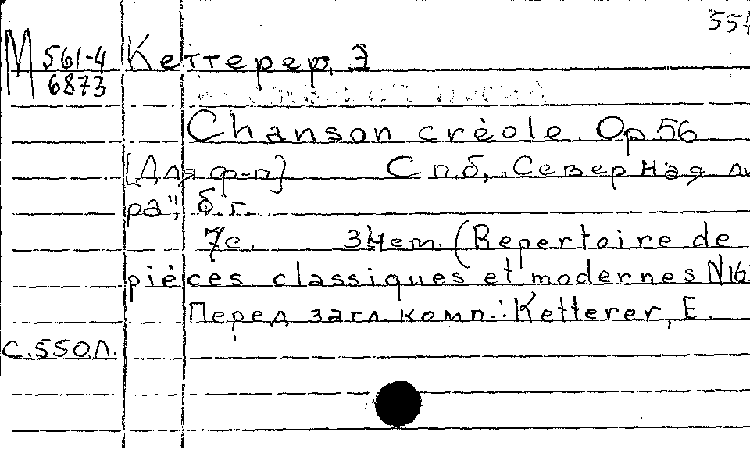 557
М 561-4 Кеттерер, Э
6873
Chanson crèole. Op 56
[Для ф-п] Спб, "Северная ли
ра", б. г.
7с. 34см. (Repertoire de
pièces classiques et modernes N 16
Перед загл. комп.: Ketterer, E.
С. 550 Л.